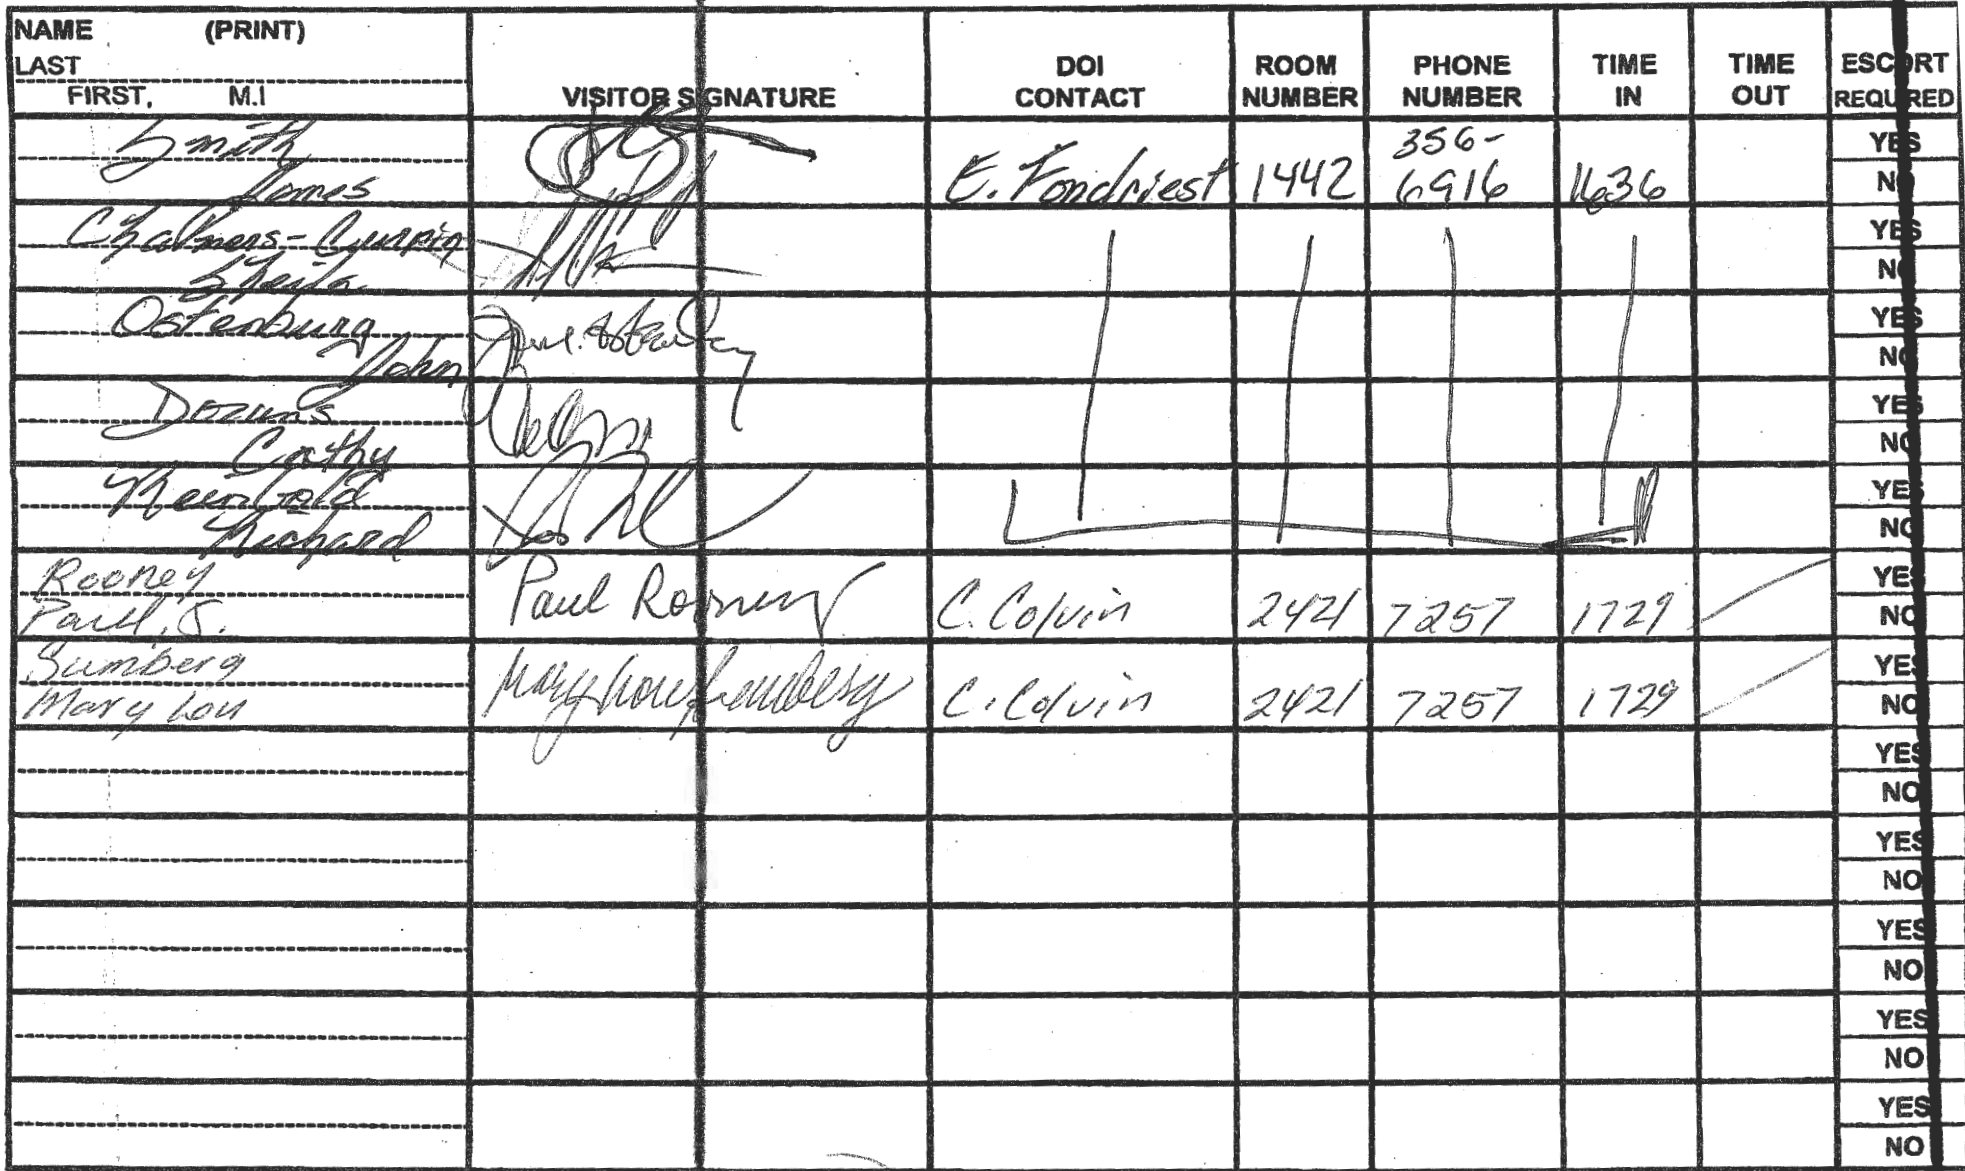 NAME (PRINT)
LAST
FIRST, M.I
VISITOR SIGNATURE
DOI CONTACT
ROOM NUMBER
PHONE NUMBER
TIME IN
TIME OUT
ESCORT REQUIRED
Smith
James
E. Fondriest 1442 356-6916 1636
YES
NO
Chalmers-Currin
Sheila
YES
NO
Ostenburg
John
YES
NO
Dozuns
Cathy
YES
NO
Reingold
Richard
YES
NO
Rooney
Paul, J.
Paul Rooney C. Colvin 2421 7257 1729
YES
NO
Sumberg
Mary Lou
Mary Lou Sumberg C. Colvin 2421 7257 1729
YES
NO
YES
NO
YES
NO
YES
NO
YES
NO
YES
NO